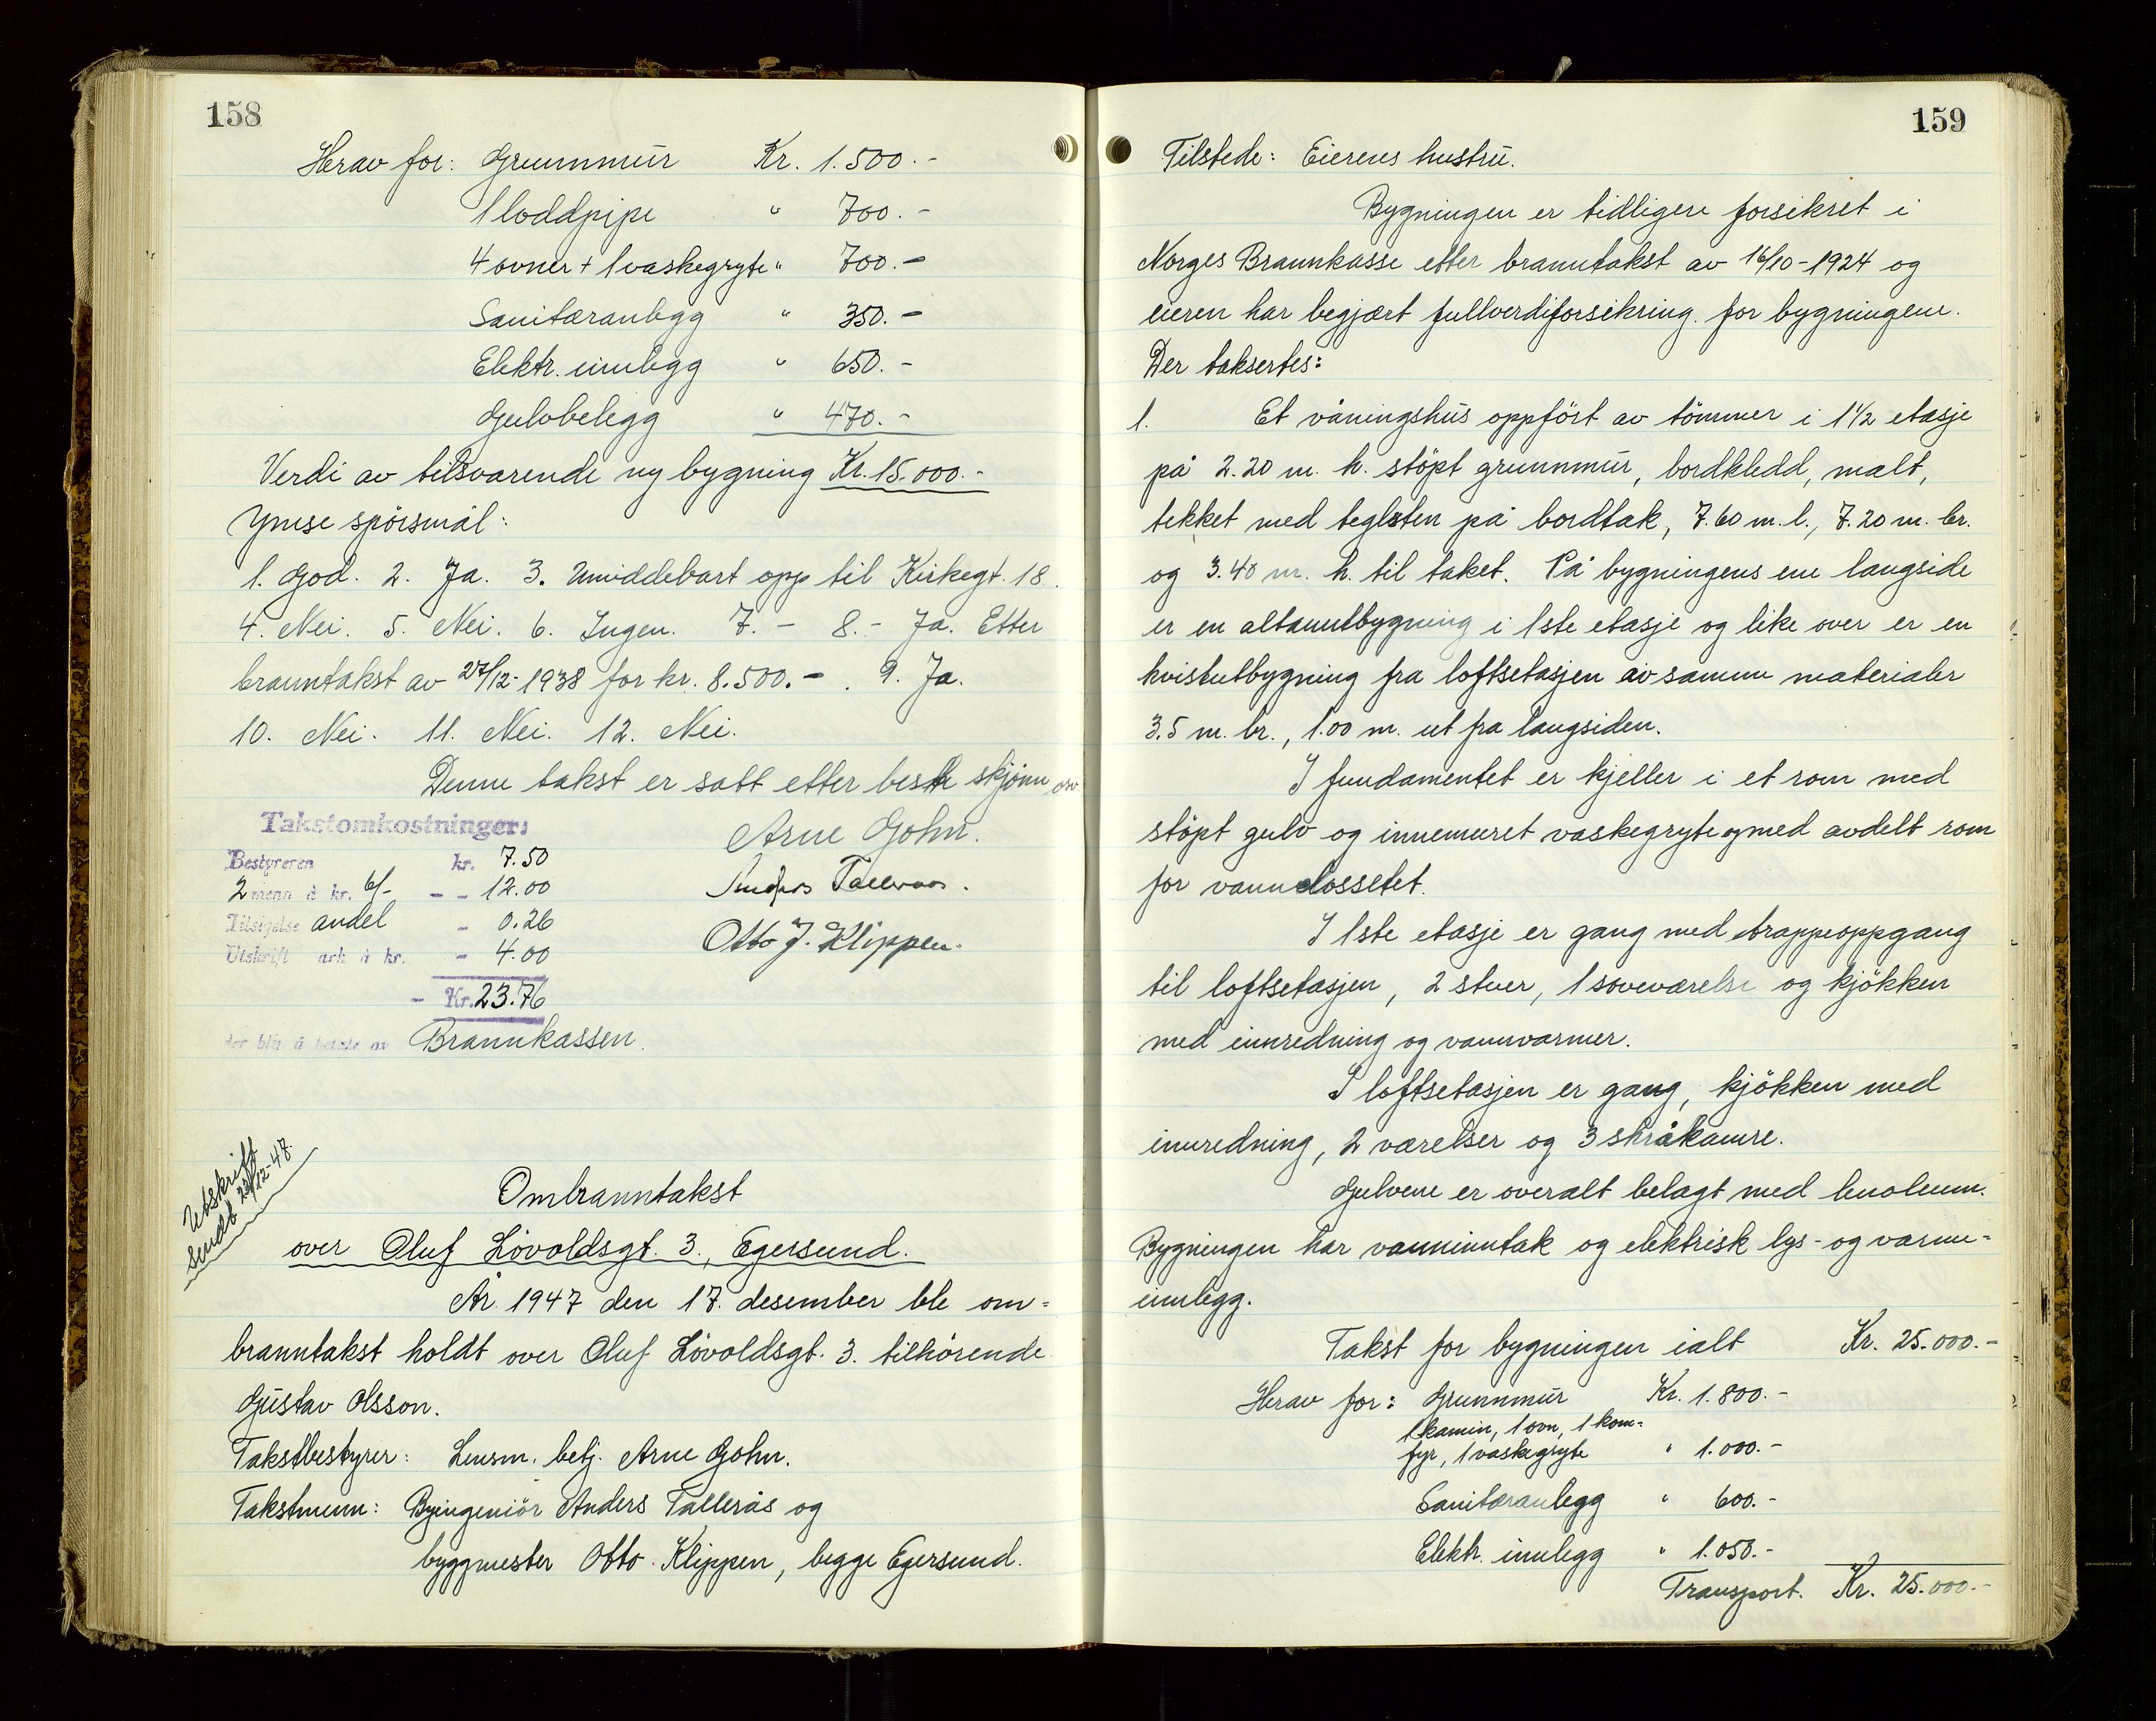 158
Herav for: Grunnmur Kr. 1.500.-
1 loddpipe " 700.-
4 ovner + 1 vaskegryte " 700.-
Sanitæranlegg " 350.-
Elektr. innlegg " 650.-
Gulvbelegg " 470.-
Verdi av tilsvarende ny bygning Kr. 15.000.-
Ymse spörsmål:
1. God. 2. Ja. 3. Umiddebart opp til Kirkegt. 18.
4. Nei. 5. Nei. 6. Ingen. 7. - 8. - Ja. Etter
branntakst av 27/12-1938 for kr. 8.500.- . 9. Ja.
10. Nei. 11. Nei. 12. Nei.
Denne takst er satt etter beste skjönn av
Takstomkostninger:
Bestyreren kr. 7.50
2 menn à kr. 6/- - - 12.00
Tilsigelse andel - 0.26
Utskrift ark à kr. - 4.00
- Kr. 23.76
der blir å betale av Brannkassen.
Arne Gohn.
Anders Tallraas.
Otto J. Klippen.
Utskrift
sendt 23/12-47.
Ombranntakst
over Oluf Lövoldsgt. 3., Egersund.
År 1947 den 17. desember ble om=
branntakst holdt over Oluf Lövoldsgt. 3. tilhörende
Gustav Olsson.
Takstbestyrer: Lensm. betj. Arne Gohn.
Takstmenn: Byingeniör Anders Tallerås og
byggmester Otto Klippen, begge Egersund.
159
Tilstede: Eierens hustru.
Bygningen er tidligere forsikret i
Norges Brannkasse etter branntakst av 16/10-1924 og
eieren har begjært fullverdiforsikring for bygningene.
Der taksertes:
1. Et våningshus oppfört av tömmer i 1 1/2 etasje
på 2.20 m. h. stöpt grunnmur, bordkledd, malt,
tekket med teglsten på bordtak, 7.60 m. l., 7.20 m. br.
og 3.40 m. h. til taket. På bygningens ene langside
er en altanutbygning i 1ste etasje og like over er en
kvistutbygning fra loftsetasjen av samme materialer
3.5 m. br., 1.00 m. ut fra langsiden.
I fundamentet er kjeller i et rom med
stöpt gulv og innemuret vaskegryte og med avdelt rom
for vannclossetet.
I 1ste etasje er gang med trappeoppgang
til loftsetasjen, 2 stuer, 1 soveværelse og kjökken
med innredning og vannvarmer.
I loftsetasjen er gang, kjökken med
innredning, 2 værelser og 3 skråkamre.
Gulvene er overalt belagt med linoleum.
Bygningen har vanninntak og elektrisk lys- og varme=
innlegg.
Takst for bygningen ialt Kr. 25.000.-
Herav for: Grunnmur Kr. 1.800.-
1 kamin, 1 ovn, 1 kom=
fyr, 1 vaskegryte " 1.000.-
Sanitæranlegg " 600.-
Elektr. innlegg " 1.050.-
Transport. Kr. 25.000.-